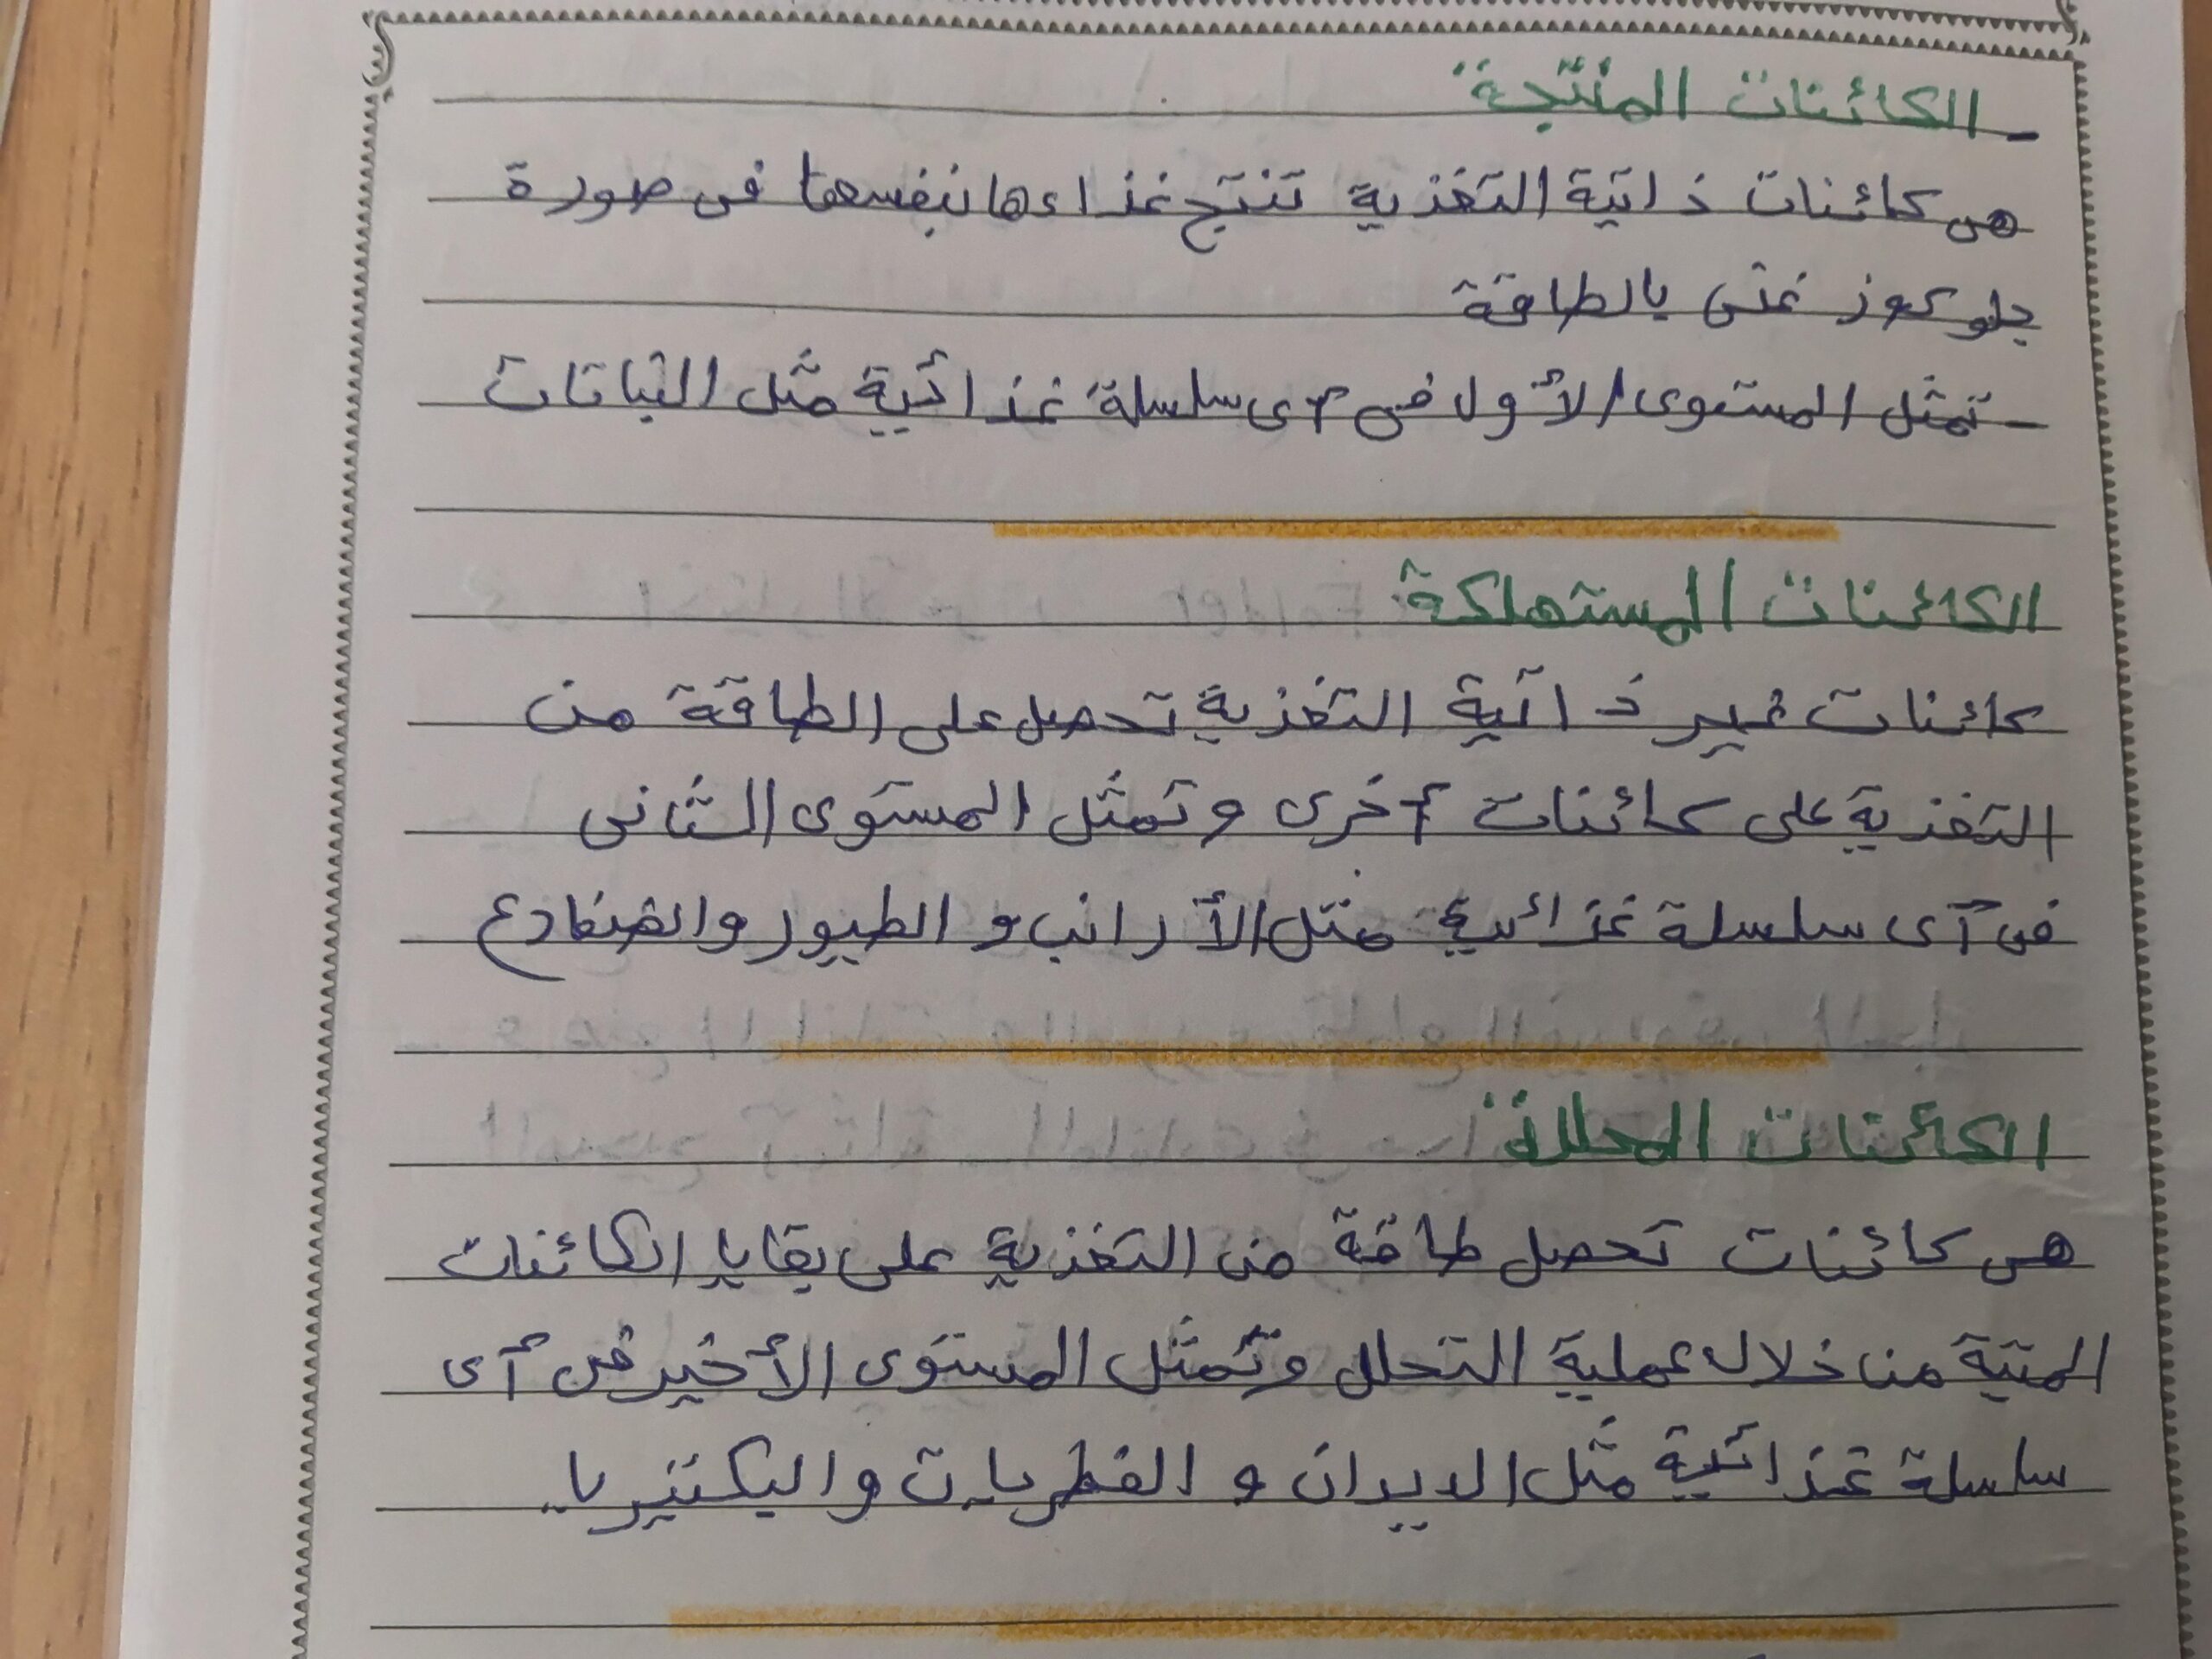 - الكائنات المنتجة:
هى كائنات ذاتية التغذية تنتج غذاءها بنفسها فى صورة
جلوكوز غنى بالطاقة
- تمثل المستوى الأول فى أى سلسلة غذائية مثل النباتات
الكائنات المستهلكة:
كائنات غير ذاتية التغذية تحصل على الطاقة من
التغذية على كائنات أخرى وتمثل المستوى الثانى
فى أى سلسلة غذائية مثل الأرانب و الطيور والضفادع
الكائنات المحللة:
هى كائنات تحصل طاقة من التغذية على بقايا الكائنات
الميتة من خلال عملية التحلل وتمثل المستوى الأخير فى أى
سلسلة غذائية مثل الديدان و الفطريات والبكتيريا.